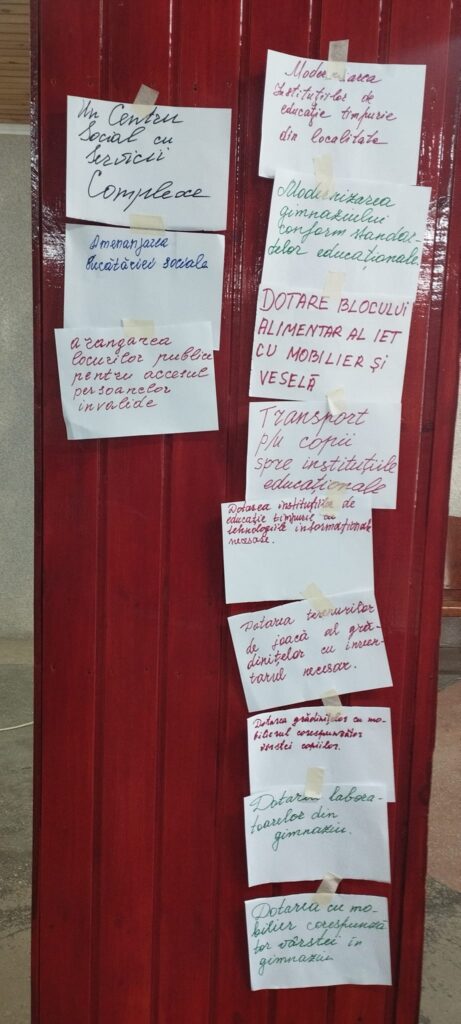 Un Centru
Social cu
Servicii
Complexe
Amenanjarea
bucătăriei sociale
arangarea
locurilor publice
pentru accesul
persoanelor
invalide
Modernizarea
Instituțiilor de
educație timpurie
din localitate
Modernizarea
gimnaziului
conform standar-
telor educaționale
DOTARE BLOCULUI
ALIMENTAR AL IET
CU MOBILIER ȘI
VESELĂ
Transport
p/u copii
spre instituțiile
educaționale
Dotarea instituțiilor de
educație timpurie cu
tehnologiile informaționale
necesare.
Dotarea terenurilor
de joacă al gră-
dinițelor cu inven-
tarul necesar.
Dotarea grădinițelor cu mo-
bilierul corespunzător
vârstei copiilor.
Dotarea labora-
toarelor din
gimnaziu.
Dotarea cu mo-
bilier corespunză
tor vârstei în
gimnaziu